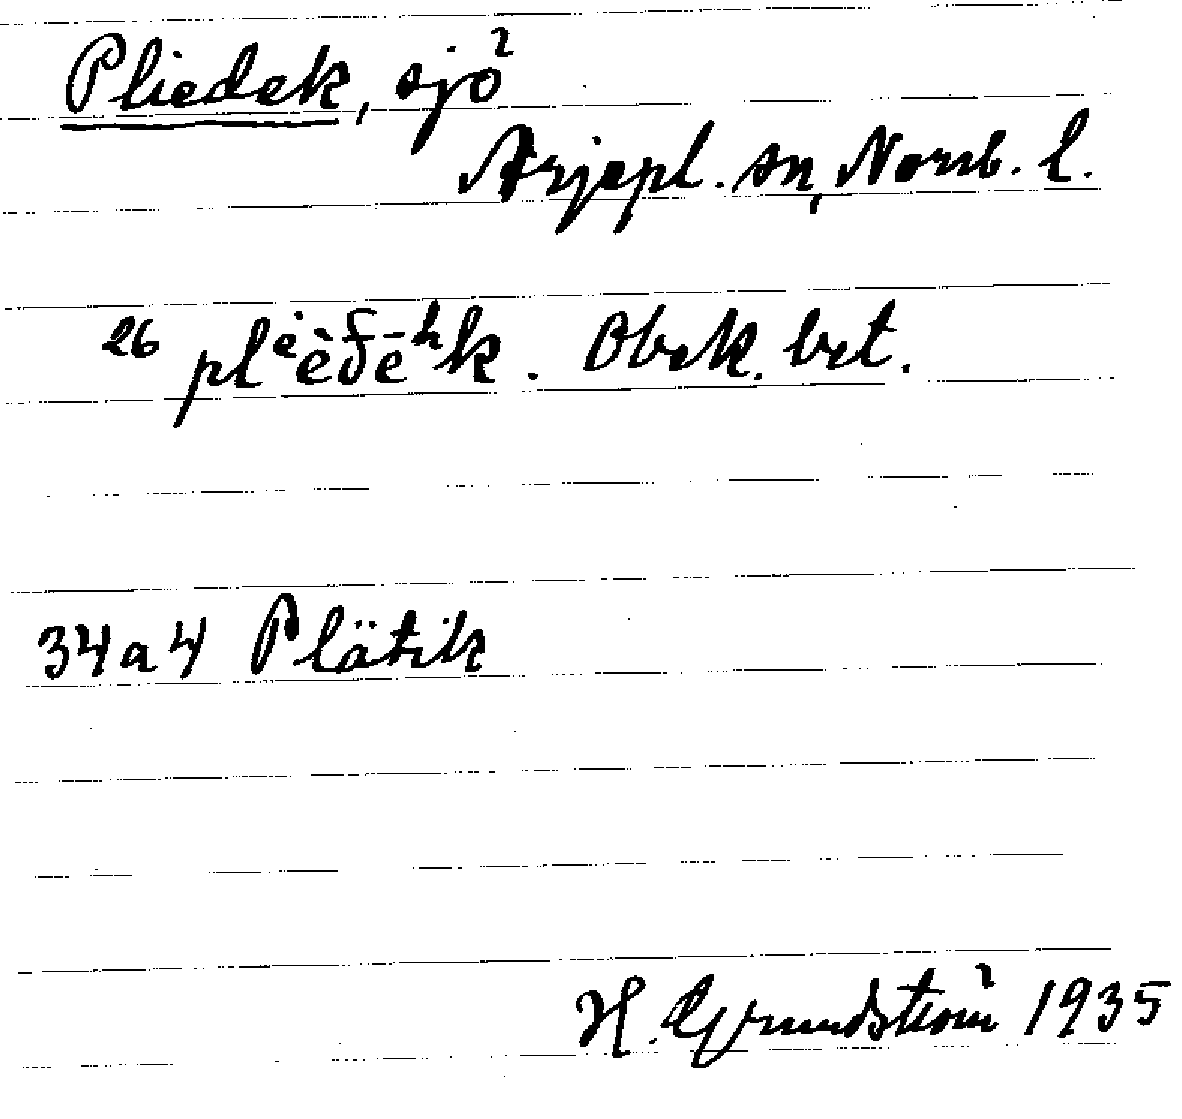 Pliedek, sjö
Arjepl. sn, Norrb. l.
26 plėèđēʰk. Obek. bet.
34 a 4 Plätik
H. Grundström 1935